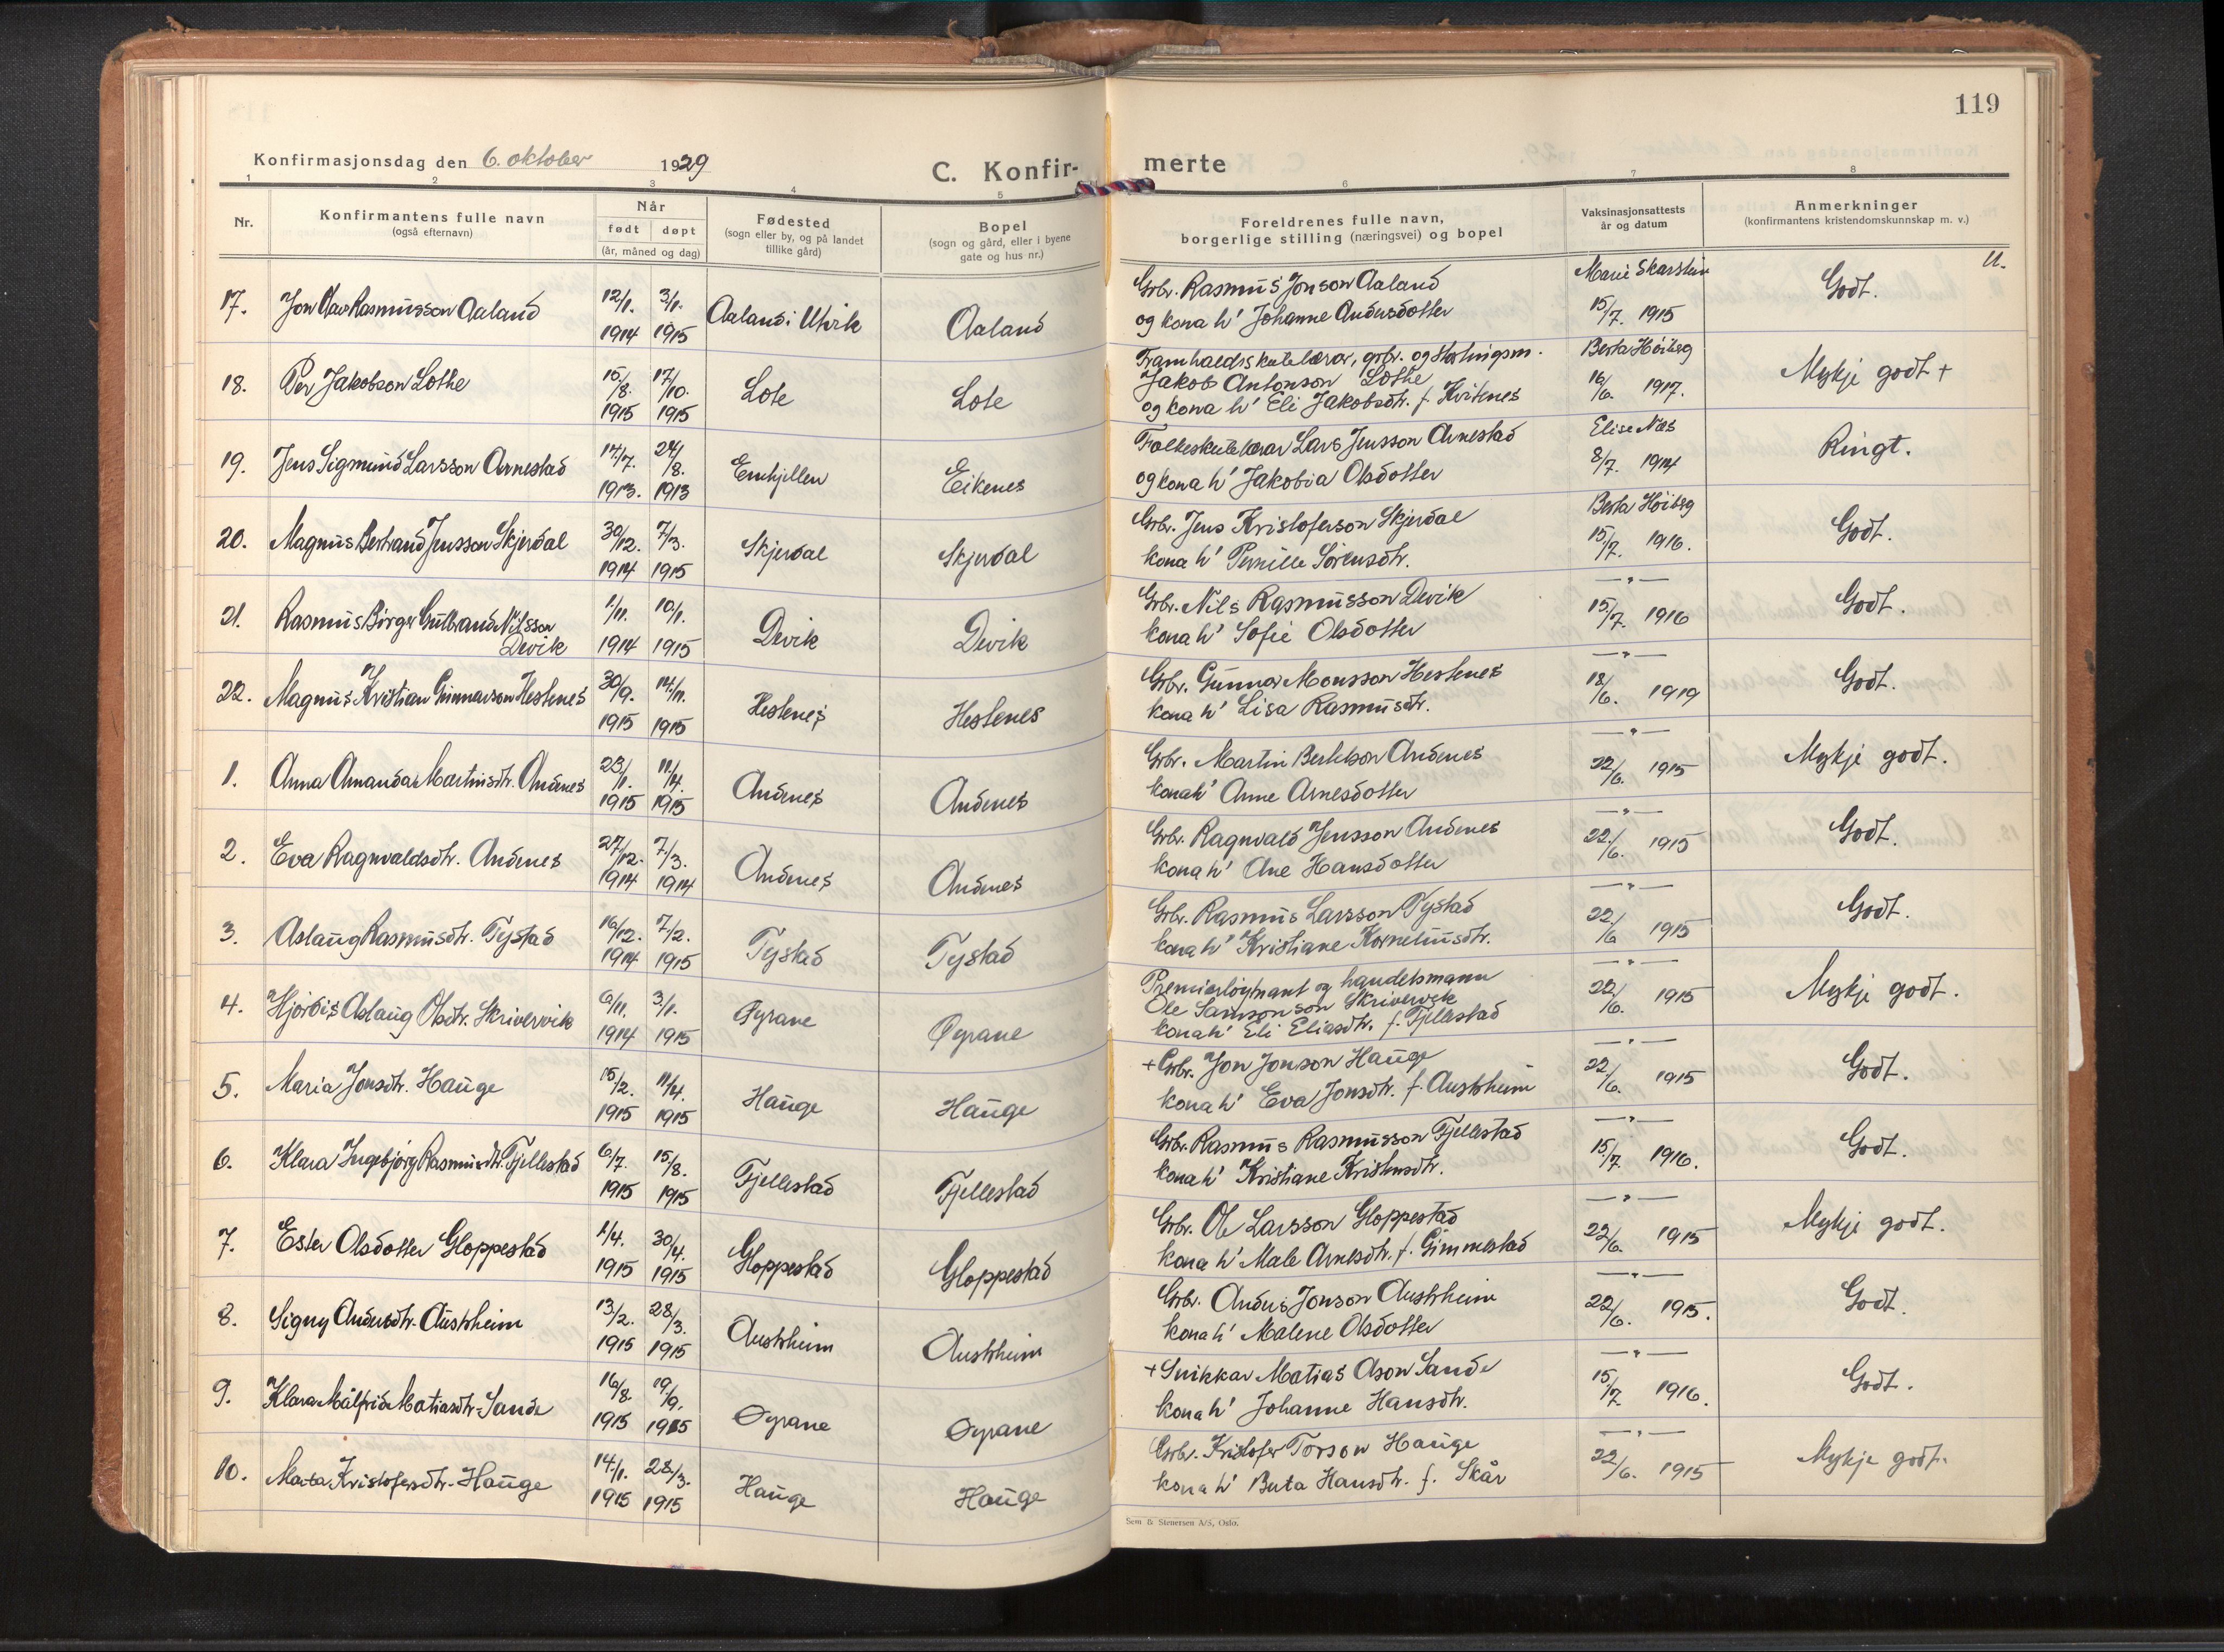 119
Konfirmasjonsdag den 6. oktober 1929
C. Konfir- merte
1 2 3 4 5 6 7 8
Nr.
Konfirmantens fulle navn
(også efternavn)
Når
født døpt
(år, måned og dag)
Fødested
(sogn eller by, og på landet
tillike gård)
Bopel
(sogn og gård, eller i byene
gate og hus nr.)
Foreldrenes fulle navn,
borgerlige stilling (næringsvei) og bopel
Vaksinasjonsattests
år og datum
Anmerkninger
(konfirmantens kristendomskunnskap m. v.)
U.
17. Jon Olav Rasmusson Aaland 12/1. 1914 3/1. 1915 Aaland i Utvik Aaland
Grbr. Rasmus Jonson Aaland
og kona h' Johanne Andersdotter
Marie Skarstein
15/7. 1915
Godt.
18. Per Jakobson Lothe 15/8. 1915 17/10. 1915 Lote Lote
Framhaldsskulelærar, grbr. og stortingsm.
Jakob Antonson Lothe
og kona h' Eli Jakobsdtr. f. Hvitenes
Berta Höiberg
16/6. 1917.
Mykje godt +
19. Jens Sigmund Larsson Arnestad 17/7. 1913. 24/8. 1913 Emhjellen Eikenes
Folkeskulelærar Lars Jensson Arnestad
og kona h' Jakobia Olsdotter
Elise Næs
8/7. 1914
Ringt.
20. Magnus Bertrand Jensson Skjerdal 30/12. 1914 7/3. 1915 Skjerdal Skjerdal
Grbr. Jens Kristoferson Skjerdal
kona h' Pernille Sörensdtr.
Berta Höiberg
15/7. 1916.
Godt.
21. Rasmus Birger Gulbrand Nilsson
Devik 1/11. 1914 10/1. 1915 Devik Devik
Grbr. Nils Rasmusson Devik
kona h' Sofie Olsdotter
— " —
15/7. 1916
Godt.
22. Magnus Kristian Gunnarson Hestenes 30/9. 1915 14/11. 1915 Hestenes Hestenes
Grbr. Gunnar Monsson Hestenes
kona h' Lisa Rasmusdtr.
— " —
18/6. 1919
Godt.
1. Anna Amanda Martinsdtr. Andenes 23/1. 1915 11/4. 1915 Andenes Andenes
Grbr. Martin Bertelson Andenes
kona h' Anne Arnesdotter
— " —
22/6. 1915
Mykje godt.
2. Eva Ragnvaldsdtr. Andenes 27/12. 1914 7/3. 1914 Andenes Andenes
Grbr. Ragnvald Jensson Andenes
kona h' Ane Hansdotter
— " —
22/6. 1915
Godt.
3. Aslaug Rasmusdtr. Tystad 16/12. 1914 7/2. 1915 Tystad Tystad
Grbr. Rasmus Larsson Tystad
kona h' Kristiane Korneliusdtr.
— " —
22/6 1915
Godt.
4. Hjördis Aslaug Olsdtr. Skrivervik 6/11. 1914 3/1. 1915 Øyrane Øyrane
Premierløytnant og handelsmann
Ole Samsonson Skrivervik
kona h' Eli Eliasdtr. f. Fjellestad
— " —
22/6. 1915
Mykje godt.
5. Maria Jonsdtr. Hauge 15/2. 1915 11/4. 1915 Hauge Hauge
+ Grbr. Jon Jonson Hauge
kona h' Eva Jonsdtr. f. Austrheim
— " —
22/6. 1915
Godt.
6. Klara Ingebjörg Rasmusdtr. Fjellestad 6/7. 1915 15/8. 1915 Fjellestad Fjellestad
Grbr. Rasmus Rasmusson Fjellestad
kona h' Kristiane Kristensdtr.
— " —
15/7. 1916.
Godt.
7. Ester Olsdotter Gloppestad 4/4. 1915 30/4. 1915 Gloppestad Gloppestad
Grbr. Ole Larsson Gloppestad
kona h' Male Arnesdtr. f. Gimmestad
— " —
22/6. 1915
Mykje godt.
8. Signy Andersdtr. Austrheim 13/2. 1915 28/3. 1915 Austrheim Austrheim
Grbr. Anders Jonson Austrheim
kona h' Malene Olsdotter
— " —
22/6. 1915.
Godt.
9. Klara Målfrid Matiasdtr. Sande 16/8. 1915 19/9. 1915 Øyrane Øyrane
+ Snikkar Matias Ason Sande
kona h' Johanne Hansdtr.
— " —
15/7. 1916.
Godt.
10. Marta Kristofersdtr. Hauge 14/1. 1915 28/3. 1915 Hauge Hauge
Grbr. Kristofer Torson Hauge
kona h' Berta Hansdtr. f. Skår
— " —
22/6. 1915
Mykje godt.
Sem & Stenersen A/S, Oslo.